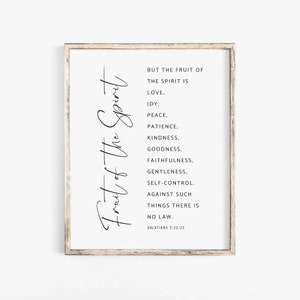 Fruit of the Spirit
BUT THE FRUIT OF
THE SPIRIT IS
LOVE,
JOY,
PEACE,
PATIENCE,
KINDNESS,
GOODNESS,
FAITHFULNESS,
GENTLENESS,
SELF-CONTROL.
AGAINST SUCH
THINGS THERE IS
NO LAW.
GALATIANS 5:22-23